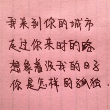 我来到你的城市
走过你来时的路
想象着没我的日子
你是怎样的孤独